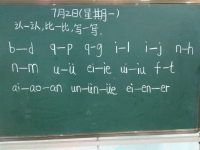 7月2日(星期一)
认一认,比一比,写一写.
b—d q—p q—g i—l i—j n—h
n—m u—ü ei—ie ui—iu f—t
ai—ao—an un—ün—üe ei—en—er